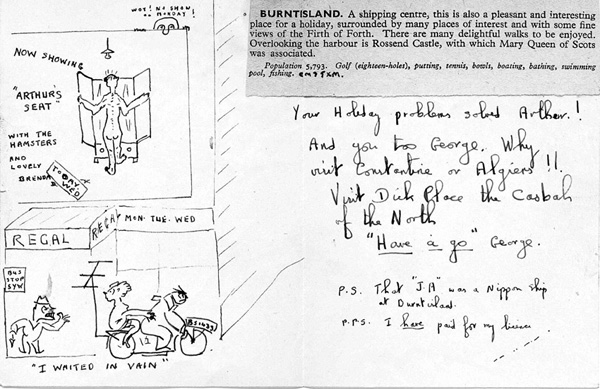 WOT! NO SHOW
ON MONDAY!
NOW SHOWING
"ARTHUR'S
SEAT"
WITH THE
HAMSTERS
AND
LOVELY
BRENDA
TODAY
WED
REGAL
REGAL
MON. TUE. WED
BUS
STOP
"I WAITED IN VAIN"
BURNTISLAND. A shipping centre, this is also a pleasant and interesting
place for a holiday, surrounded by many places of interest and with some fine
views of the Firth of Forth. There are many delightful walks to be enjoyed.
Overlooking the harbour is Rossend Castle, with which Mary Queen of Scots
was associated.
Population 5,793. Golf (eighteen-holes), putting, tennis, bowls, boating, bathing, swimming
pool, fishing.
Your Holiday problems solved Arthur.!
And you too George. Why
visit Constantine or Algiers !!.
Visit Dick Place the Casbah
of the North
"Have a go" George.
P.S. That "J.A" was a Nippon ship
at Burntisland.
P.P.S. I have paid for my licence